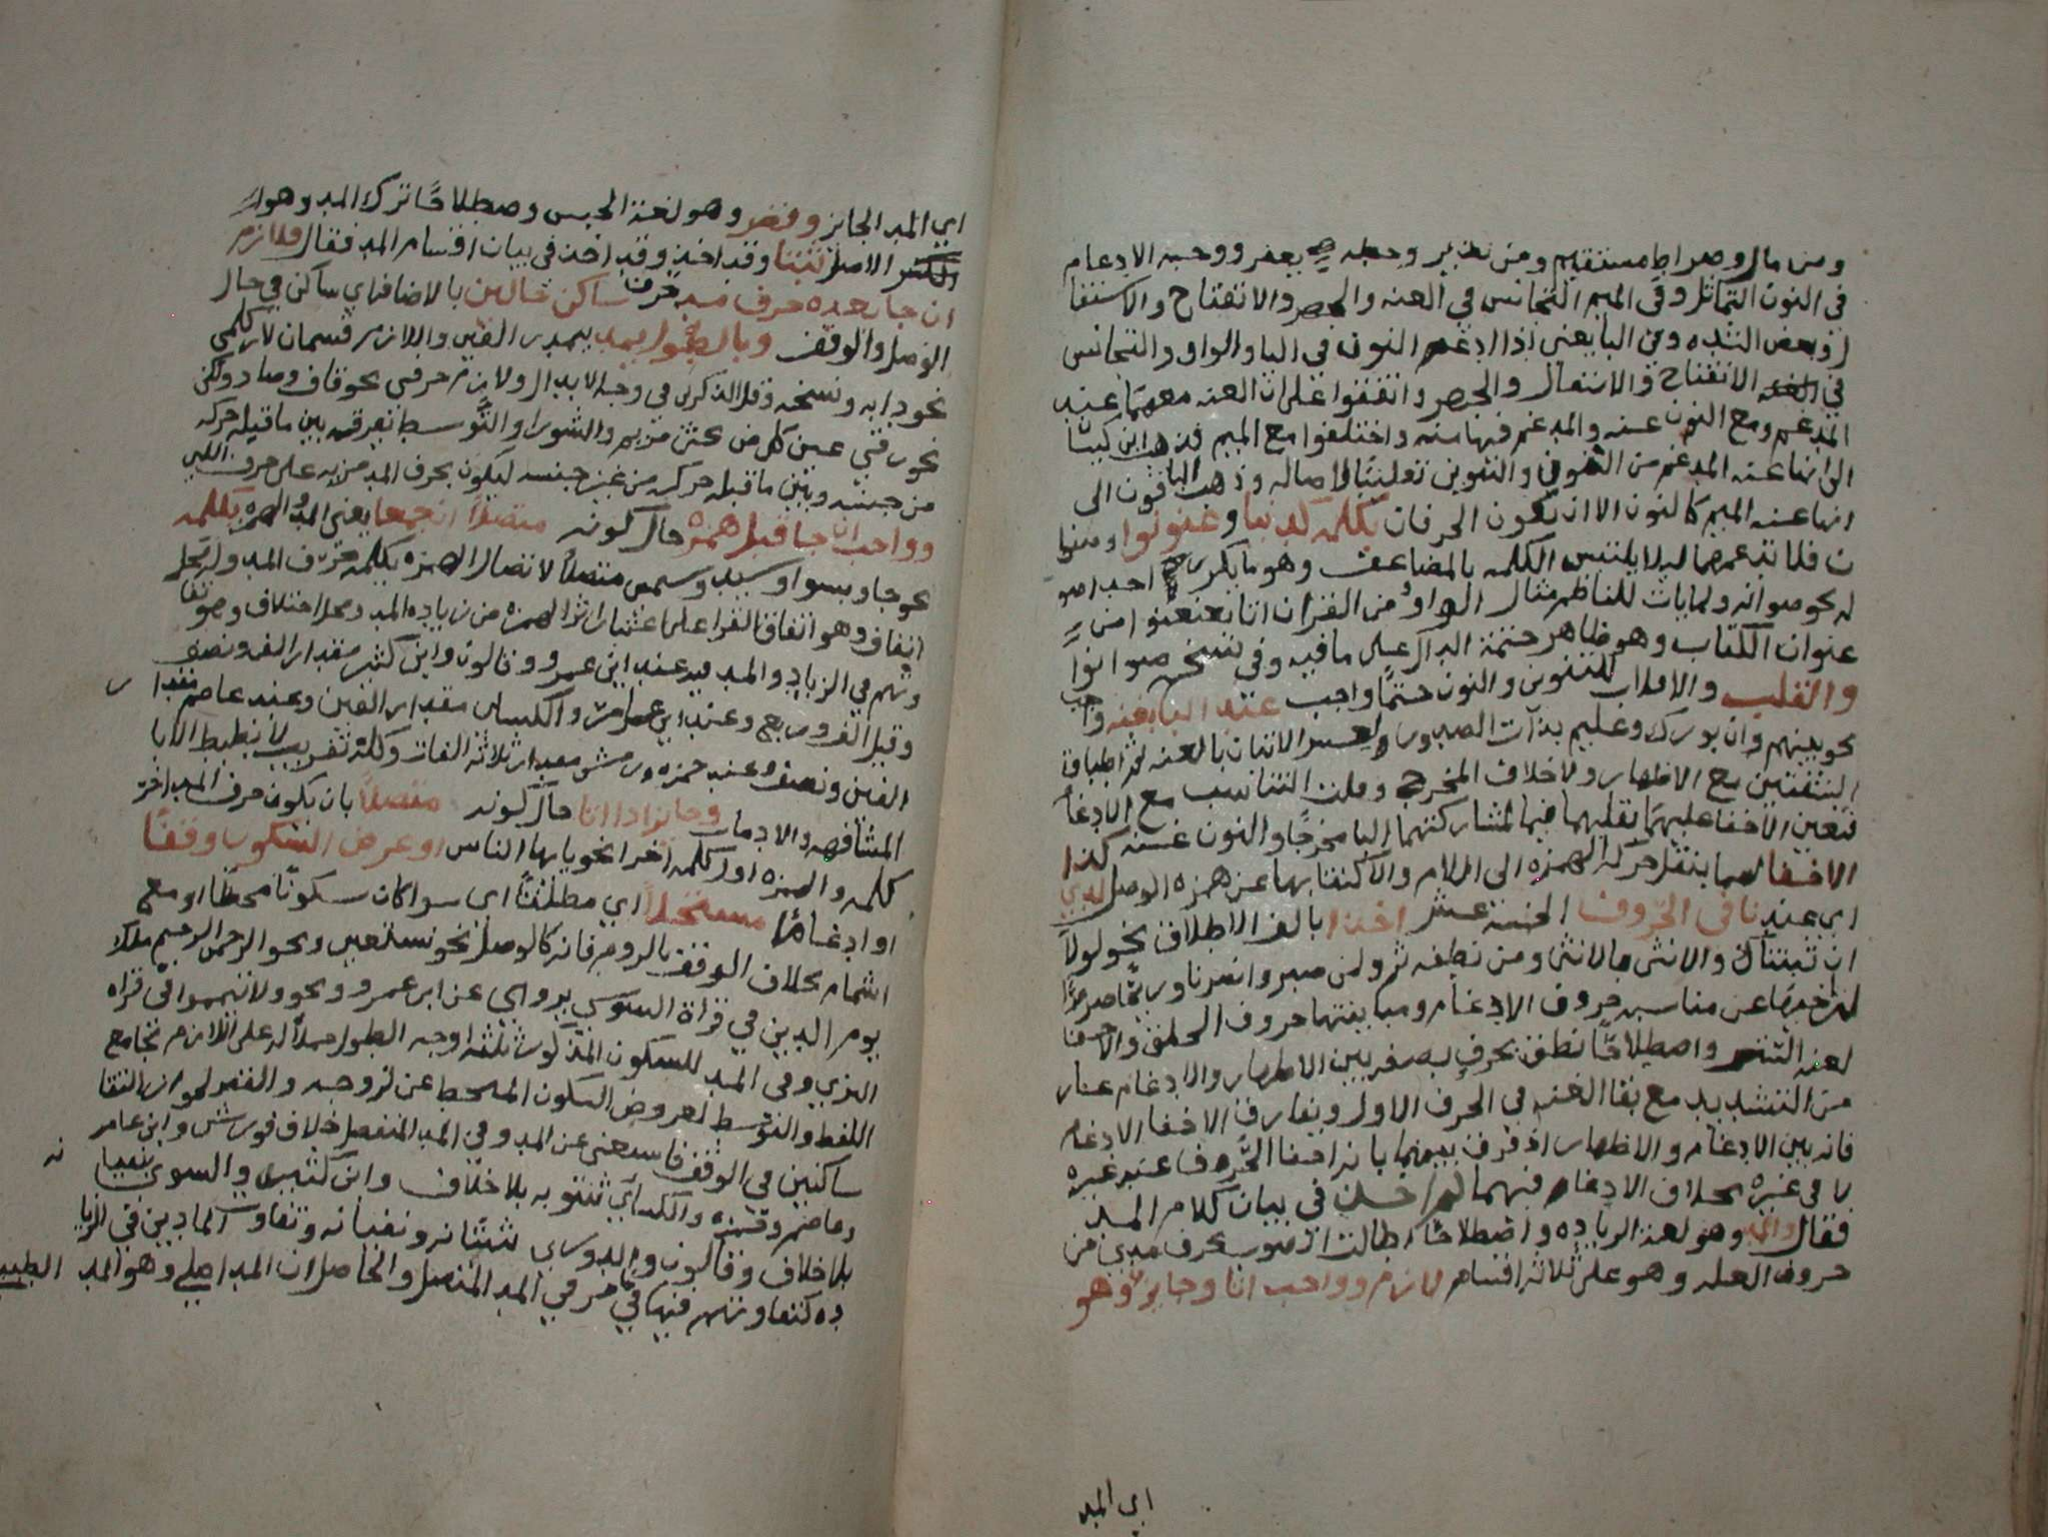 ومن مال وصراط مستقيم ومن نذير ووجه الادغام
في النون التماثل وفي الميم التجانس في الغنه والجهر والانفتاح والاستفا
ل وبعض الشده وفي اليا يعني اذا ادغم النون في اليا والواو والتجانس
في الانفتاح والاستفال والجهر واتفقوا على ان الغنه معهما غنه
المدغم ومع النون غنه والمدغم فيها منه واختلفوا مع الميم فذهب ابن كيسا
الى انها غنه المدغم من النون والتنوين تغليبا لاصاله وذهب الباقون الى
انها غنه الميم كالنون الا ان تكون الحرفان بكلمه كدنيا وعنونوا وصنوا
ن فلا تدغمهما ليلا يلتبس الكلمه بالمضاعف وهو ما يكرر احد اصو
له نحو صوانه ولم يات للناظم مثال الواو من القران اتا بعنونوا من
عنوان الكتاب وهو ظاهر ختمه الدال على ما فيه وفي نسخ صوانوا
والقلب والاقلاب للتنوين والنون حتما واجب عند البا بغنه واجب
نحو بينهم وان بورك وعليم بذات الصدور ولعسر الاتيان بالغنه ثم اطباق
الشفتين مع الاظهار ولاختلاف المخرج وقلت التناسب مع الادغام
فتعين الاخفا عليهما بقلبهما ميما لمشاركتهما البا مخرجا والنون غنه كذا
الاخفا بنقل حركه الهمزه الى اللام والاكتفا بها عن همزه الوصل لدي
اي عند باقي الحروف الخمسه عشر اخذا بالف الاطلاق نحو لولا
ان ثبتناك والانثى بالانثى ومن نطفه ثم ولمن صبر وانصرنا وريحا صرصرا
عن مناسبه حروف الادغام ومباينتها حروف الحلق والاخفا
لغه الستر واصطلاحا نطق بحرف بصفه بين الاظهار والادغام عار
من التشديد مع بقا الغنه في الحرف الاول ويفارق الاخفا الادغام
فانه بين الادغام والاظهار اذ فرق بينهما بانه اخفا الحروف عند غيره
لا في غيره بخلاف الادغام فيهما ثم اخذ في بيان كلام المد
فقال والمد وهو لغه الزياده واصطلاحا اطالت الصوت بحرف مدي من
حروف العله وهو على ثلاثه اقسام لازم وواجب اتا وجايز وهو
اي المد
اي المد الجايز وقصر وهو لغه الحبس وصطلاحا ترك المد وهو
الاصل ثبتا وقد اخذ وقد اخذ في بيان اقسام المد فقال فلازم
ان جا بعده حرف مد حرف ساكن حالين بالاضافه اي ساكن في حال
الوصل والوقف وبالطول يمد بمدر الفين واللازم قسمان لازم كلمي
نحو دابه ونسخه وقل الذكرين في وجه الابدال ولازم حرفي نحو قاف وصاد ولكن
نحو في عين كل من مريم والشورا والتوسط تفرقه بين ما قبله حركه
من جنسه وبين ما قبله حركه من غير جنسه ليكون بحرف المد مزيه على حرف اللين
وواجب ان جا قبل همزه حال كونه متصلا ان جمعا يعني المد والهمزه بكلمه
نحو جا وبسوا وسيد وسمي متصلا لاتصال الهمزه بكلمه حرف المد وله محل
اتفاق وهو اتفاق القرا على اعتبار اثر الهمزه من زياده المد ومحل اختلاف وهو تفا
وتهم في الزياده والمد فيه عند ابي عمرو وقالون وابن كثير مقدار الف ونصف
وقيل الف وربع وعند ابن عامر والكساي مقدار الفين وعند عاصم مقدار
الفين ونصف وعند حمزه وورش مقدار ثلاثه الفات وكله تقريب لا ينضبط الا با
لمشافهه والادمان وجايز اذا اتا حال كونه منفصلا بان يكون حرف المد اخر
كلمه والهمزه اول كلمه اخرا نحو يا ايها الناس او عرض السكون وقفا
او ادغاما مسجلا اي مطلقا اي سوا كان سكونا محظا او مع
اشمام بخلاف الوقف بالروم فانه كالوصل نحو نستعين ونحو الرحمن الرحيم ملك
يوم الدين في قراة السوسي يروي عن ابي عمرو ونحو ولا تيمموا في قراه
البزي وفي المد للسكون المذكور ثلثه اوجه الطول حملا له على اللازم بجامع
اللفظ والتوسط لعروض السكون المنحط عن لزوجه والقصر لجواز التقا
ساكنين في الوقف فاستغنى عن المد وفي المد المنفصل خلاف فورش وابن عامر
وعاصم وحمزه والكساي ثبتو به بلا خلاف وابن كثير والسوسي نفيا نه
بلا خلاف وقالون والدوري ثبتانه ونفيانه وتفاوت المادين في الزيا
ده كتفاوتهم فيها في المد المتصل والحاصل ان المد اصلي وهو المد الطبيعي